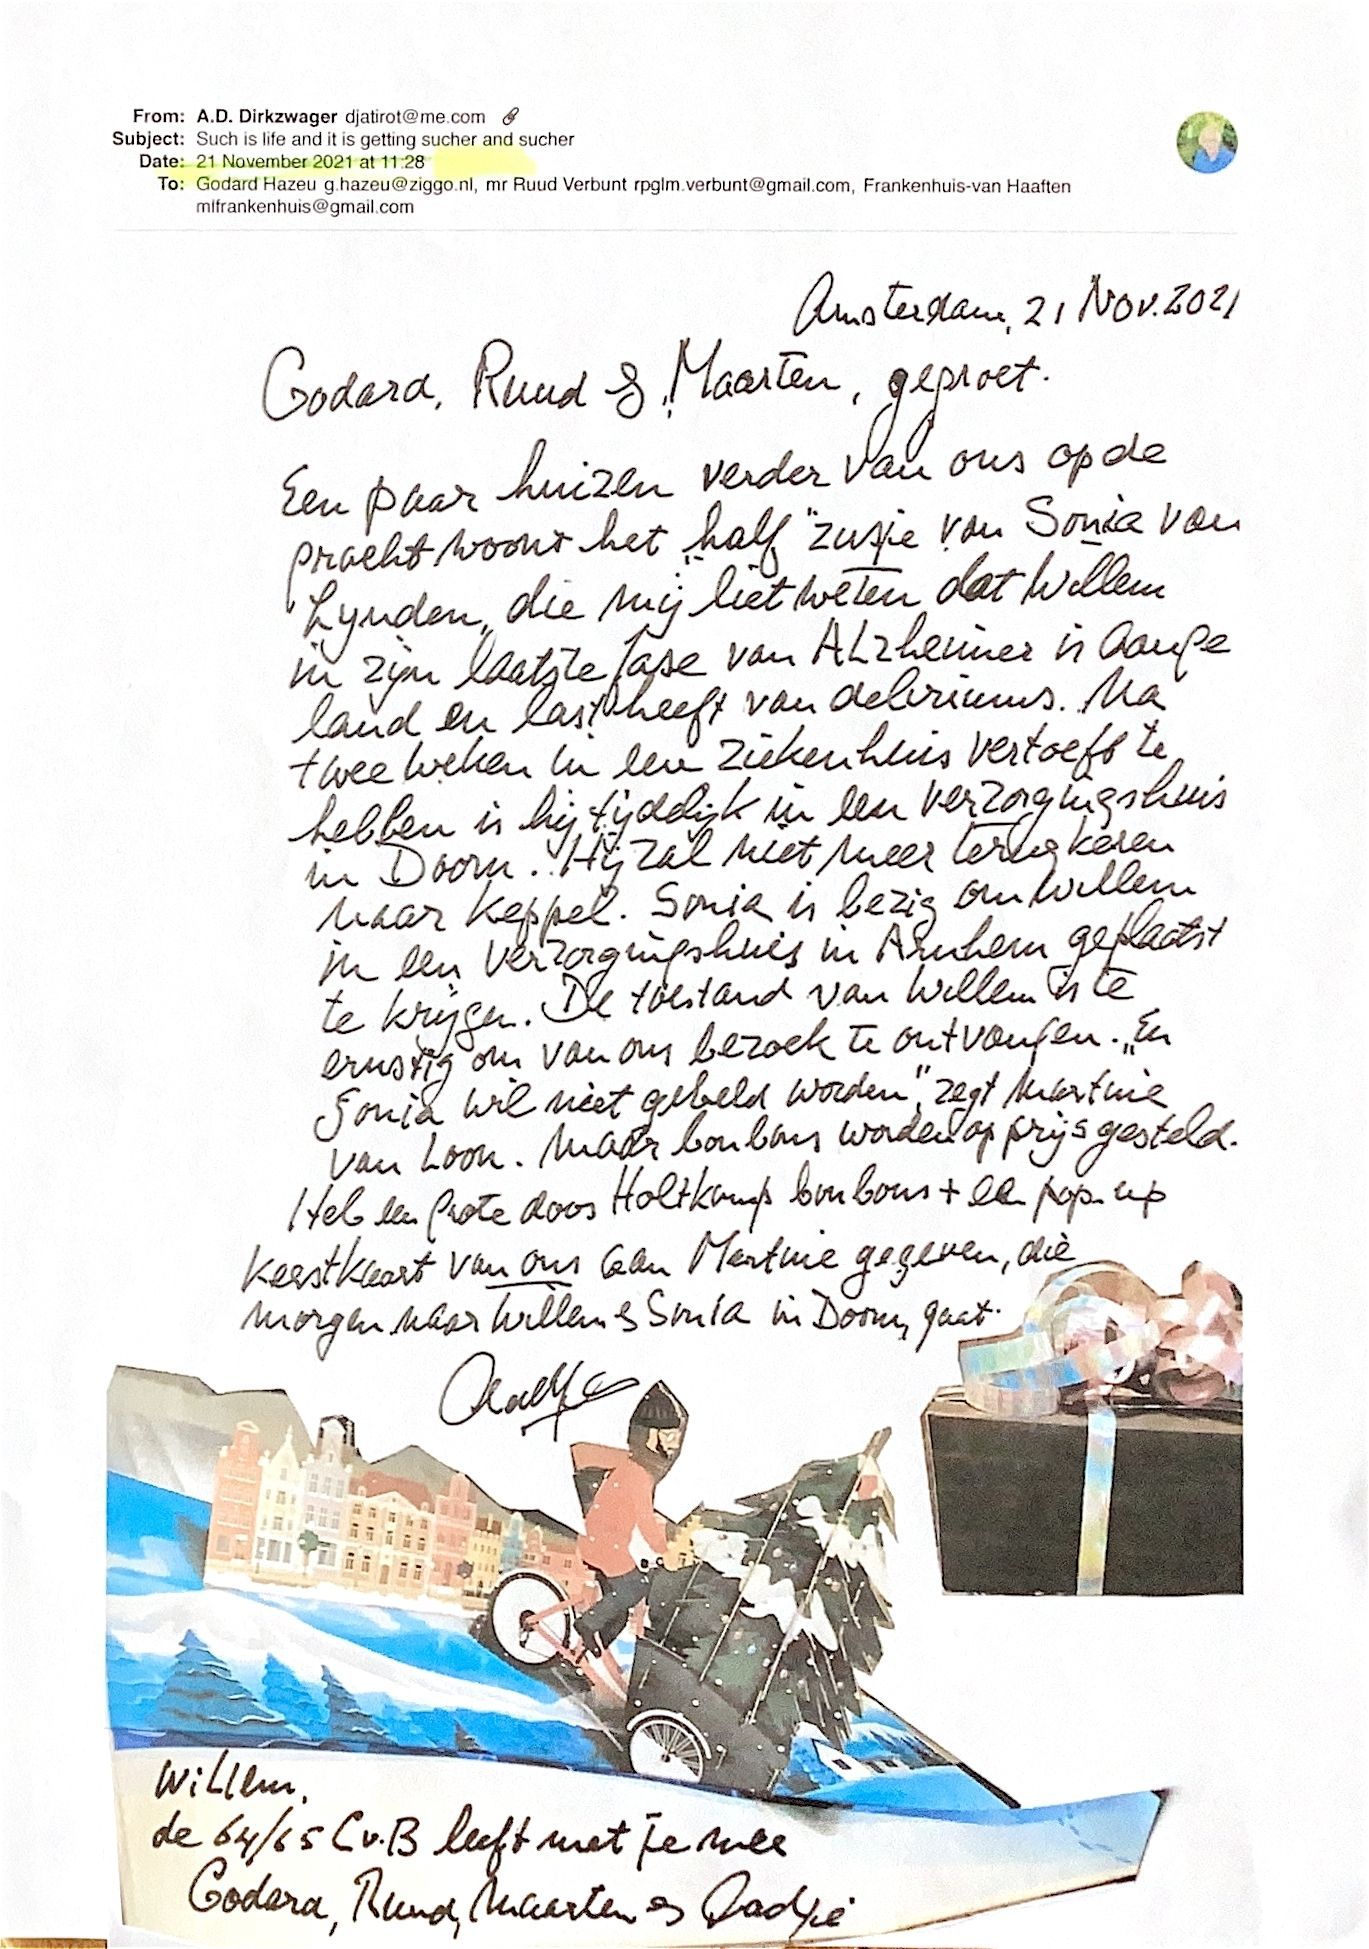 From: A.D. Dirkzwager djatirot@me.com
Subject: Such is life and it is getting sucher and sucher
Date: 21 November 2021 at 11:28
To: Godard Hazeu g.hazeu@ziggo.nl, mr Ruud Verbunt rpglm.verbunt@gmail.com, Frankenhuis-van Haaften
mlfrankenhuis@gmail.com
Amsterdam, 21 Nov. 2021
Godard, Ruud & Maarten, gegroet.
Een paar huizen verder van ons op de
gracht woont het „half" zusje van Sonia van
Lynden, die mij liet weten dat Willem
in zijn laatste fase van Alzheimer is aange
land en last heeft van deliriums. Na
twee weken in een ziekenhuis vertoeft te
hebben is hij tijdelijk in een verzorgingshuis
in Doorn. Hij zal niet meer terugkeren
naar Keppel. Sonia is bezig om Willem
in een verzorgingshuis in Arnhem geplaatst
te krijgen. De toestand van Willem is te
ernstig om van ons bezoek te ontvangen. „En
Sonia wil niet gebeld worden", zegt Martine
van Loon. Maar bonbons worden op prijs gesteld.
Heb een grote doos Holtkamp bonbons + een pop-up
kerstkaart van ons aan Martine gegeven, die
morgen naar Willem & Sonia in Doorn, gaat.
Willem,
de 64/65 C.v.B leeft met je mee
Godard, Ruud, Maarten &